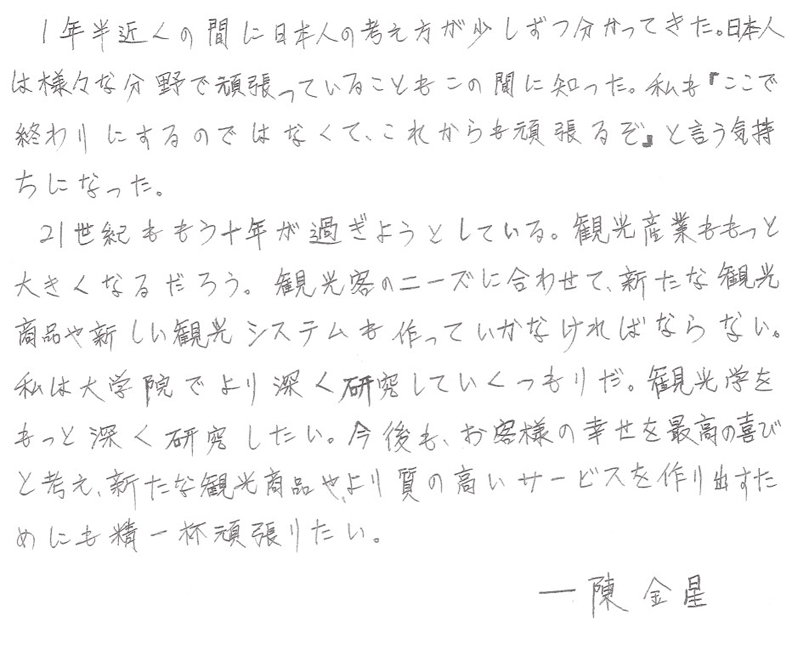 1年半近くの間に日本人の考え方が少しずつ分かってきた。日本人
は様々な分野で頑張っていることもこの間に知った。私も『ここで
終わりにするのではなくて、これからも頑張るぞ』と言う気持
ちになった。
21世紀ももう十年が過ぎようとしている。観光産業ももっと
大きくなるだろう。観光客のニーズに合わせて、新たな観光
商品や新しい観光システムも作っていかなければならない。
私は大学院でより深く研究していくつもりだ。観光学を
もっと深く研究したい。今後も、お客様の幸せを最高の喜び
と考え、新たな観光商品や、より質の高いサービスを作り出すた
めにも精一杯頑張りたい。
―陳金星